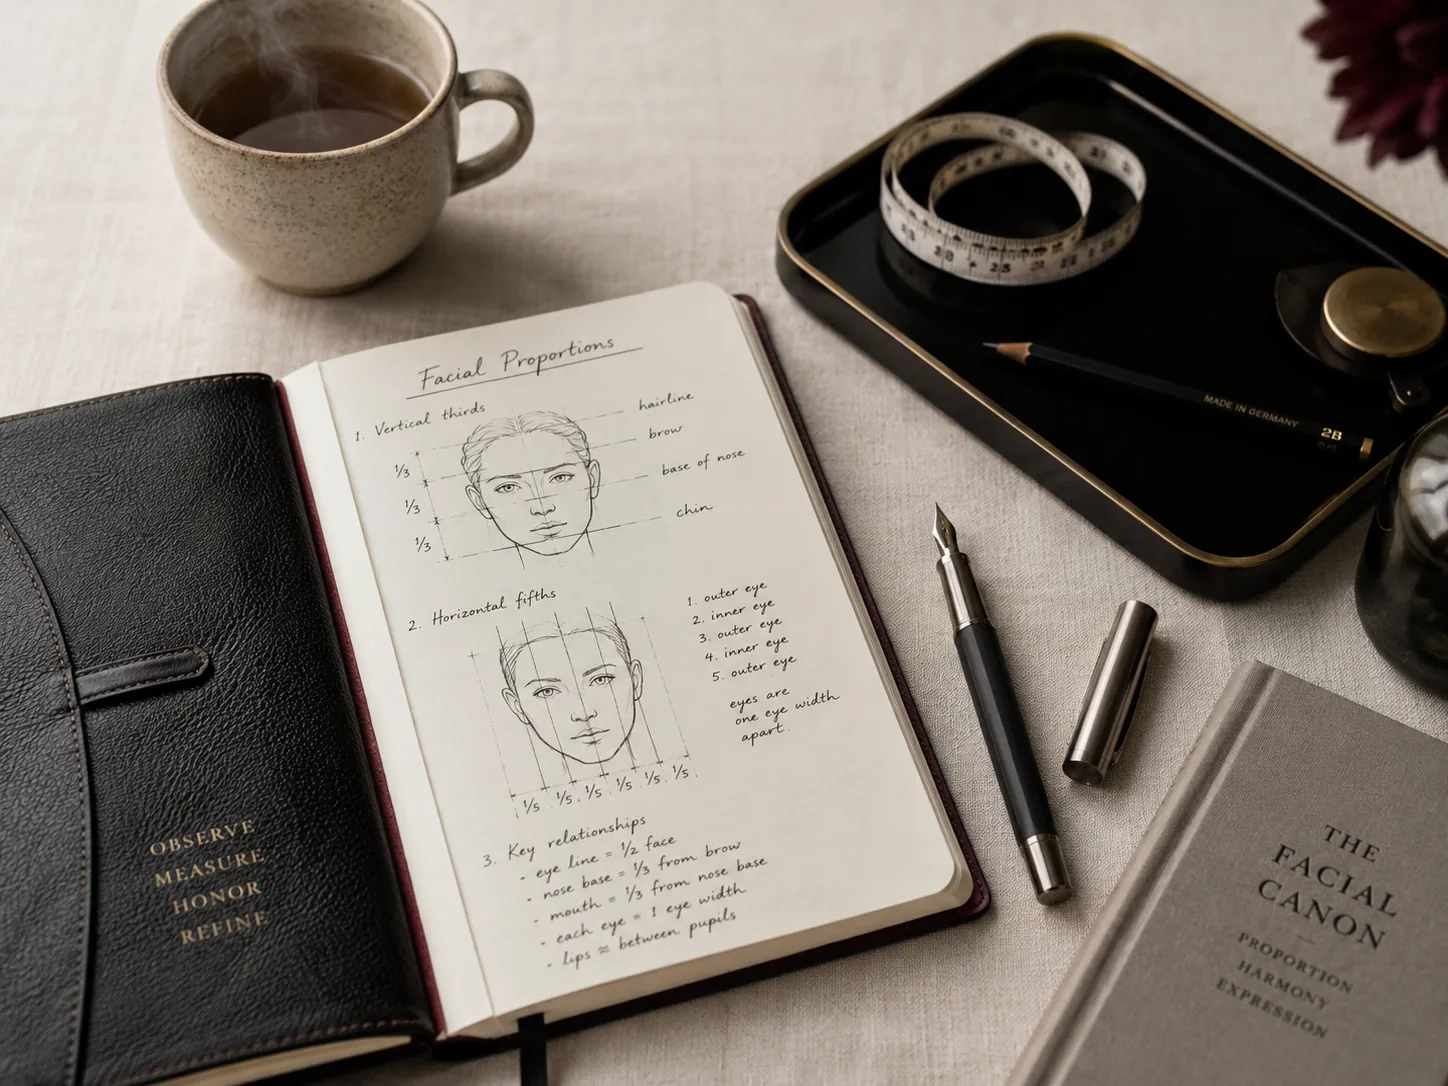 Facial Proportions
1. Vertical thirds
hairline
brow
base of nose
chin
1/3
1/3
1/3
2. Horizontal fifths
1. outer eye
2. inner eye
3. outer eye
4. inner eye
5. outer eye
eyes are
one eye width
apart.
1/5 1/5 1/5 1/5 1/5 1/5
3. Key relationships
- eye line = 1/2 face
- nose base = 1/3 from brow
- mouth = 1/3 from nose base
- each eye = 1 eye width
- lips ≈ between pupils
OBSERVE
MEASURE
HONOR
REFINE
MADE IN GERMANY 2B
THE
FACIAL
CANON
PROPORTION
HARMONY
EXPRESSION